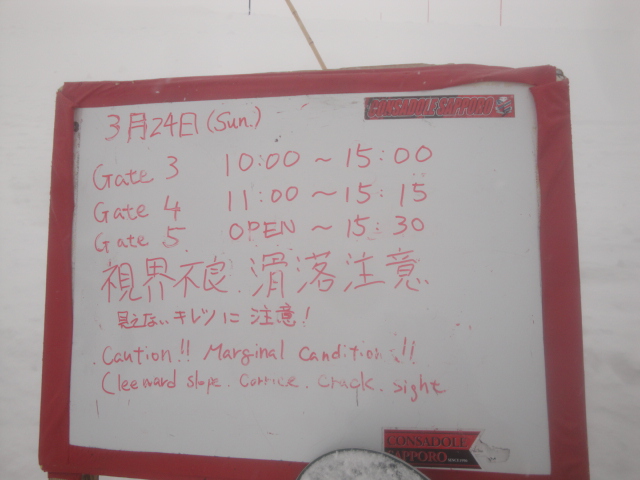 CONSADOLE SAPPORO
3月24日(Sun.)
Gate 3 10:00 ~ 15:00
Gate 4 11:00 ~ 15:15
Gate 5 OPEN ~ 15:30
視界不良.滑落注意
見えないキレツに注意!
Caution!! Marginal Candition!!
(Leeward slope. Cornice. Crack. sight
CONSADOLE
SAPPORO